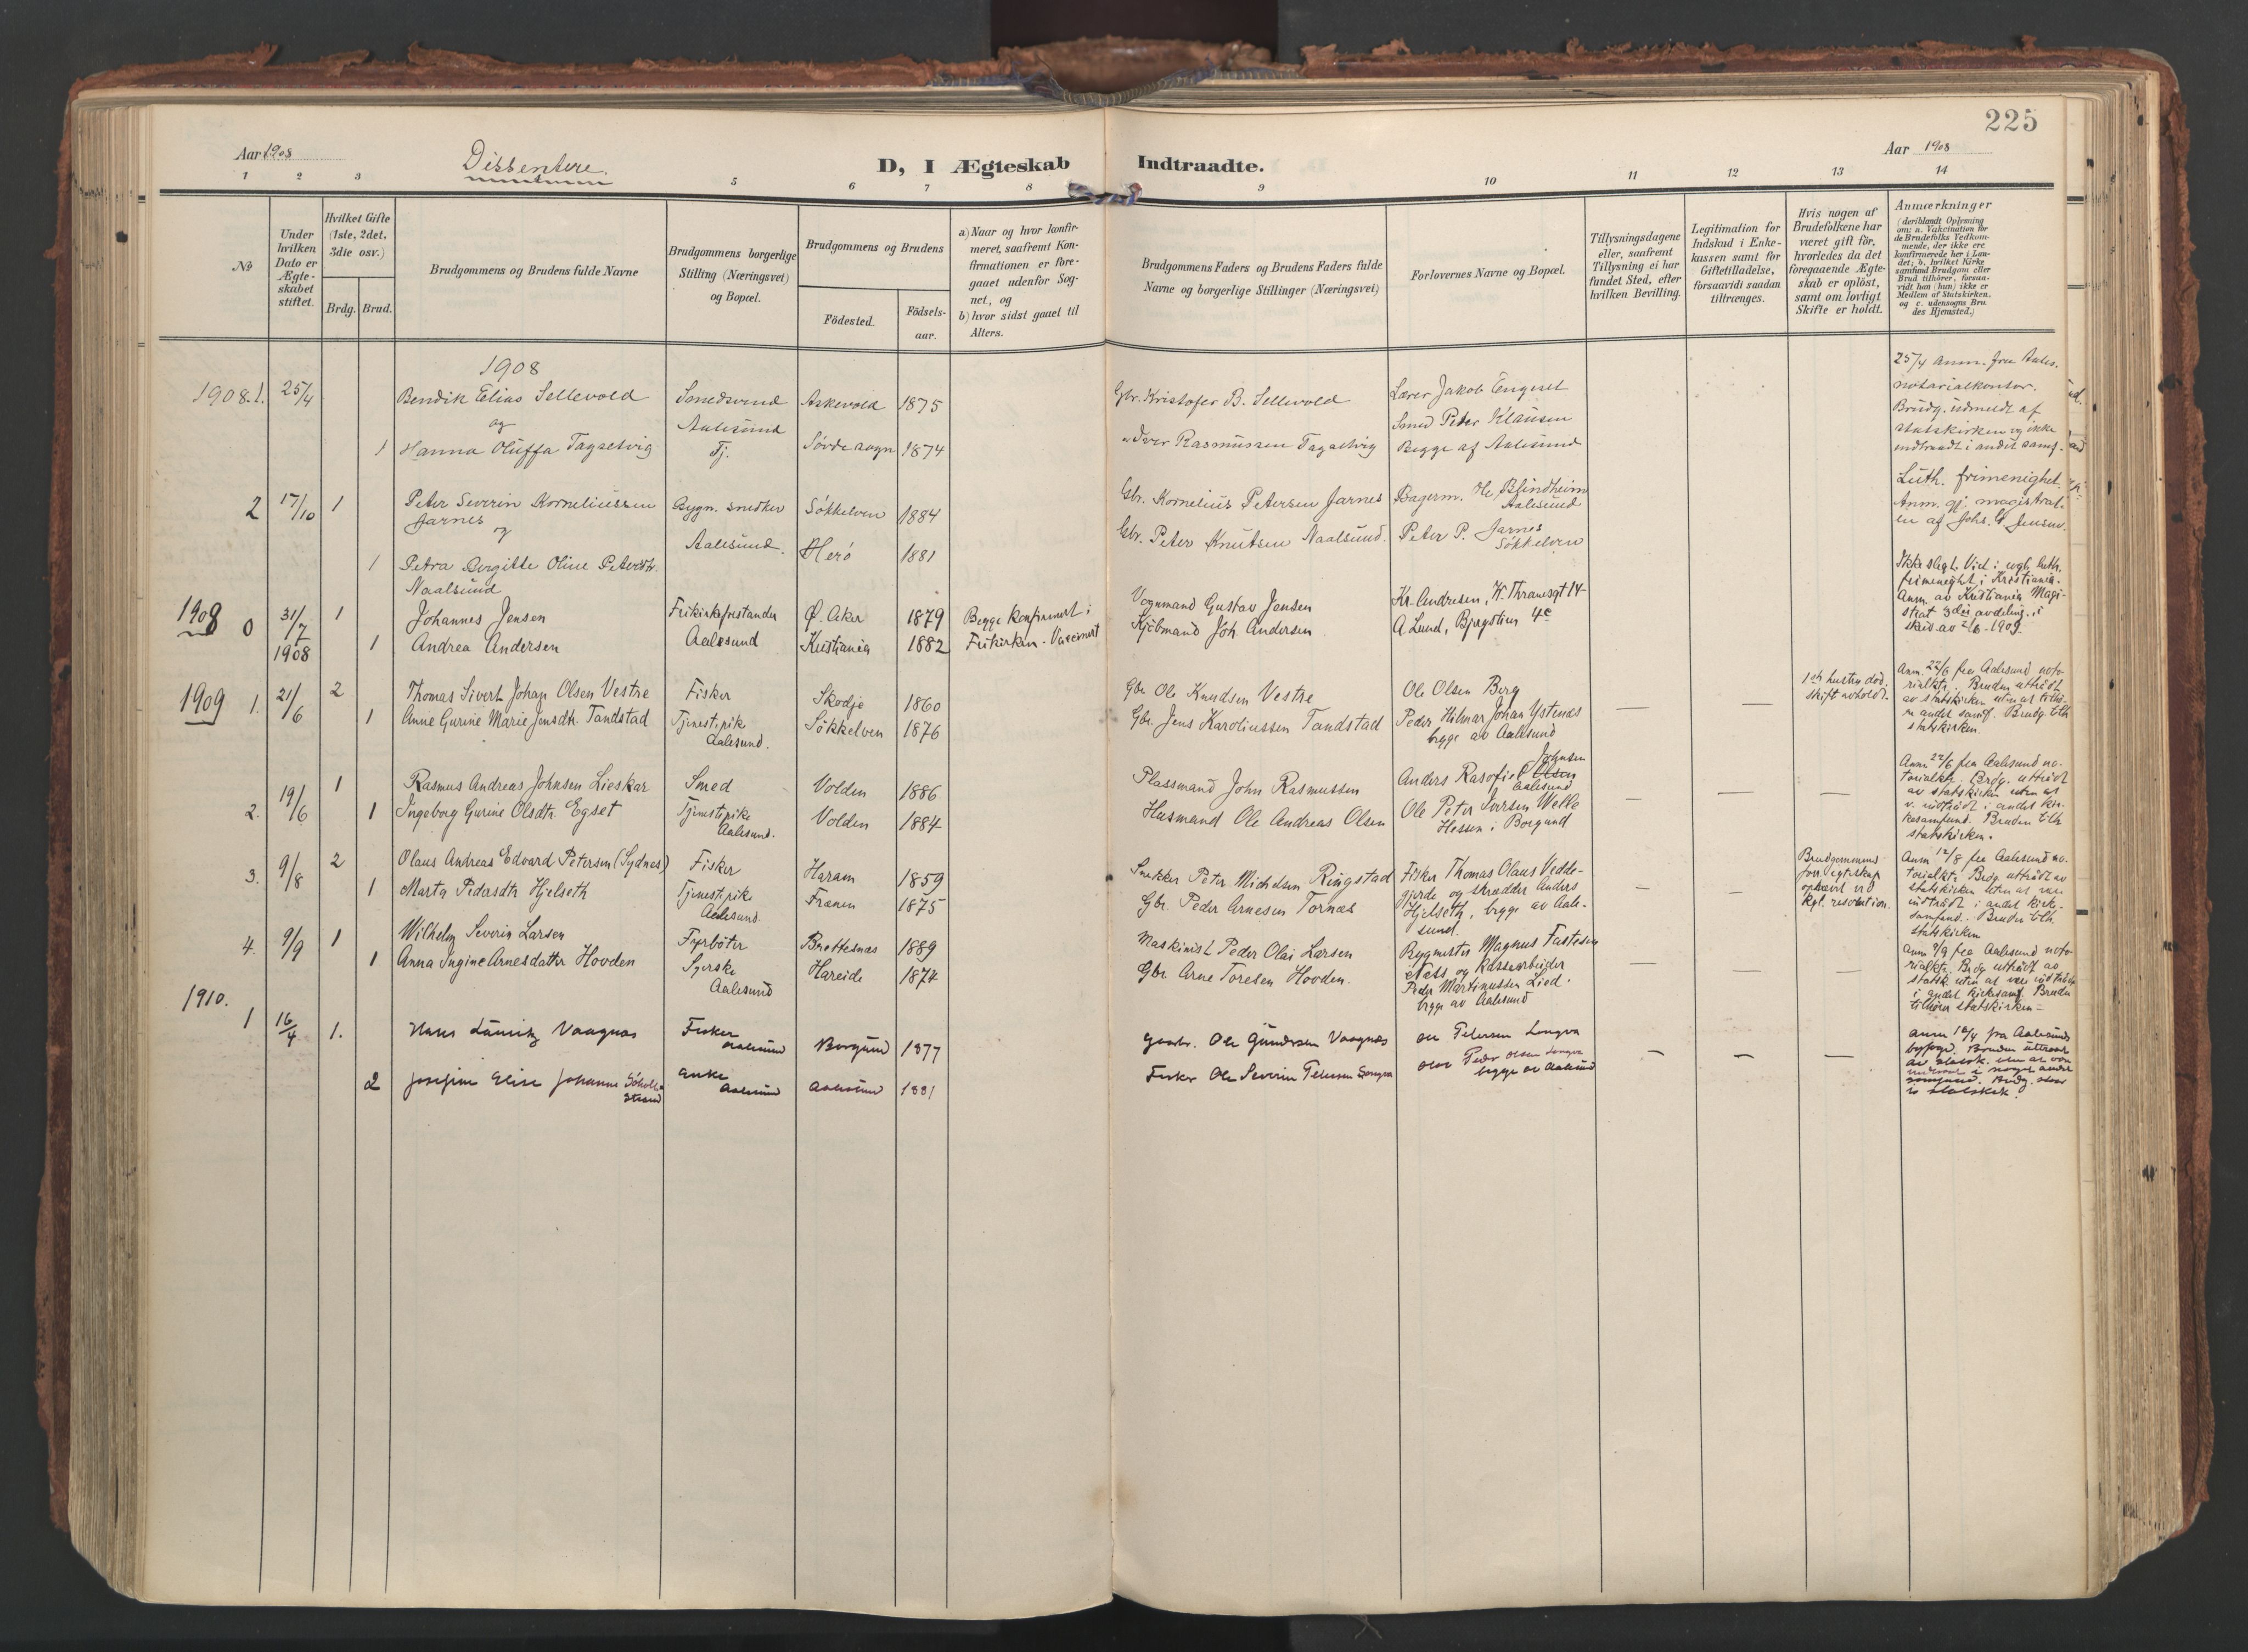 225
Aar 1908
Dissentere.
D, I Ægteskab Indtraadte.
Aar 1908
1 2 3 5 6 7 8 9 10 11 12 13 14
No
Under hvilken Dato er Ægteskabet stiftet.
Hvilket Gifte (1ste, 2det, 3die osv.)
Brdg. Brud.
Brudgommens og Brudens fulde Navne
Brudgommens borgerlige Stilling (Næringsvei) og Bopæl.
Brudgommens og Brudens
Födested.
Födsels-aar.
a) Naar og hvor konfirmeret, saafremt Konfirmationen er foregaaet udenfor Sognet, og
b) hvor sidst gaaet til Alters.
Brudgommens Faders og Brudens Faders fulde Navne og borgerlige Stillinger (Næringsvei)
Forlovernes Navne og Bopæl.
Tillysningsdagene eller, saafremt Tillysning ei har fundet Sted, efter hvilken Bevilling.
Legitimation for Indskud i Enkekassen samt for Giftetilladelse, forsaavidt saadan tiltrænges.
Hvis nogen af Brudefolkene har været gift før, hvorledes da det foregaaende Ægteskab er oplöst, samt om lovligt Skifte er holdt.
Anmærkninger
(deriblandt Oplysning om: a. Vakcination for de Brudefolks Vedkommende, der ikke ere konfirmerede her i Landet; b. hvilket Kirkesamfund Brudgom eller Brud tilhører, forsaavidt han (hun) ikke er Medlem af Statskirken, og c. udensogns Brudes Hjemsted.)
1908
1908. 1. 25/4 Bendik Elias Sellevold Smedsvend Askevold 1875 Gbr. Kristofer B. Sellevold Lærer Jakob Engeset
og Aalesund Smed Peter Klausen
1 Hanna Oluffa Tagsetvig Tj. Sövde sogn 1874 Iver Rasmussen Tagsetvig Begge af Aalesund
25/4 Anm. fra Aales.
notarialkontor.
Brudg. udmeldt af
statskirken og ikke
indtraadt i andet samf.
2 17/10 1 Peter Severin Korneliussen Bygn. snedker Sökkelven 1884 Gbr. Kornelius Petersen Jarnes Bagerm. He. Blindheim
Jarnes Aalesund
og Aalesund. Gbr. Peter Knutsen Naalsund. Peter P. Jarnes
1 Petra Birgitte Oline Petersdtr. Herö 1881 Sökkelven
Naalsund
Luth. frimenighet.
Anm. gj. magistrat-
en af Johs. G Jensen.
1908 0 31/7 1908 1 Johannes Jensen Frikirkeforstander Ø. Aker 1879 Begge konfirmert i Vognmand Gustav Jensen Kr. Andresen, W. Thranesgt 14
1 Andrea Andersen Aalesund Kristiania 1882 Frikirken - Vaccinert Kjöbmand Joh. Andersen A. Lund, Bjergstien 4c
Ikke slegt. Viet i evgl. luth.
frimenight i Kristiania.
Anm. av Kristiania Magi-
strat 3die avdeling. i
skriv. av 2/6 - 1909
1909 1. 21/6 2 Thomas Sivert Johan Olsen Vestre Fisker Skodje 1860 Gbr Ole Knudsen Vestre Ole Olsen Berg
1 Anne Gurine Marie Jensdtr. Tandstad Tjenestpike Sökkelven 1876 Gbr. Jens Karoliussen Tandstad Peder Hilmar Johan Ystenes
Aalesund. begge av Aalesund
— — 1ste hustru död.
skift avholdt.
Anm. 22/6 fra Aalesund noto-
rialktr. Bruden utträdt
av statskirken uten at tilhö-
re andet samf. Brudg. tilh
statskirken.
2. 19/6 1 Rasmus Andreas Johnsen Lieskar Smed Volden 1886 Plassmand John Rasmussen Anders Rasofiel Olsen Johnsen
Aalesund
1 Ingeborg Gurine Olsdtr. Egset Tjenestpike Volden 1884 Husmand Ole Andreas Olsen Ole Peter Iversen Welle
Aalesund. Hessen i Borgund
— — —
Anm. 22/6 fra Aalesund no-
tarialktr. Brdg. utträdt
av statskirken uten at
v. indträdt i andet kir-
kesamfund. Bruden tilh
statskirken.
3. 9/8 2 Olaus Andreas Edvard Petersen (Sydnes) Fisker Haram 1859 Snekker Peter Michelsen Ringstad Fisker Thomas Olaus Vedde-
1 Marta Pedersdtr Hjelseth Tjenestpike Frænen 1875 Gbr. Peder Arnesen Tornæs gjerde og skrædder Anders
Aalesund. Hjelseth, begge av Aale-
sund.
— — Brudgommens
forr. egteskap
ophævt ved
kgl. resolution.
Anm 12/8 fra Aalesund no-
tarialktr. Brdg utträdt av
statskirken uten at være
indträdt i andet kirke-
samfund. Bruden tilh
statskirken
4. 9/9 1 Wilhelm Severin Larsen Fyrböter Brettesnæs 1889 Maskinist Peder Olai Larsen Bygmester Magnus Fastesen
1 Anna Ingine Arnesdatter Hovden Syerske Hareide 1874 Gbr Arne Toresen Hovden. Næss og kassearbeider
Aalesund Peder Martinussen Lied.
begge av Aalesund
— — —
Anm 9/9 fra Aalesund noto-
rialktr. Brdg utträdt av
statsk uten at være indträdt
i andet kirkesamf Bruden
tilhörer statskirken —
1910.
1 16/4 1. Hans Lauritz Vaagnæs Fisker Borgund 1877 Gaarbr. Ole Gundersen Vaagnæs Ole Petersen Longva
Aalesund
2 Josefine Elise Johanne Enke Aalesund 1881 Fisker Ole Severin Petersen Longva Peder Olsen Longva
Strand Aalesund begge av Aalesund
— — —
Anm 18/4 fra Aalesunds
byfoged. Bruden uttraadt
av statsk. uten at være
indtraadt i noget andet
samfund. Brdg. staar
i statskirk.